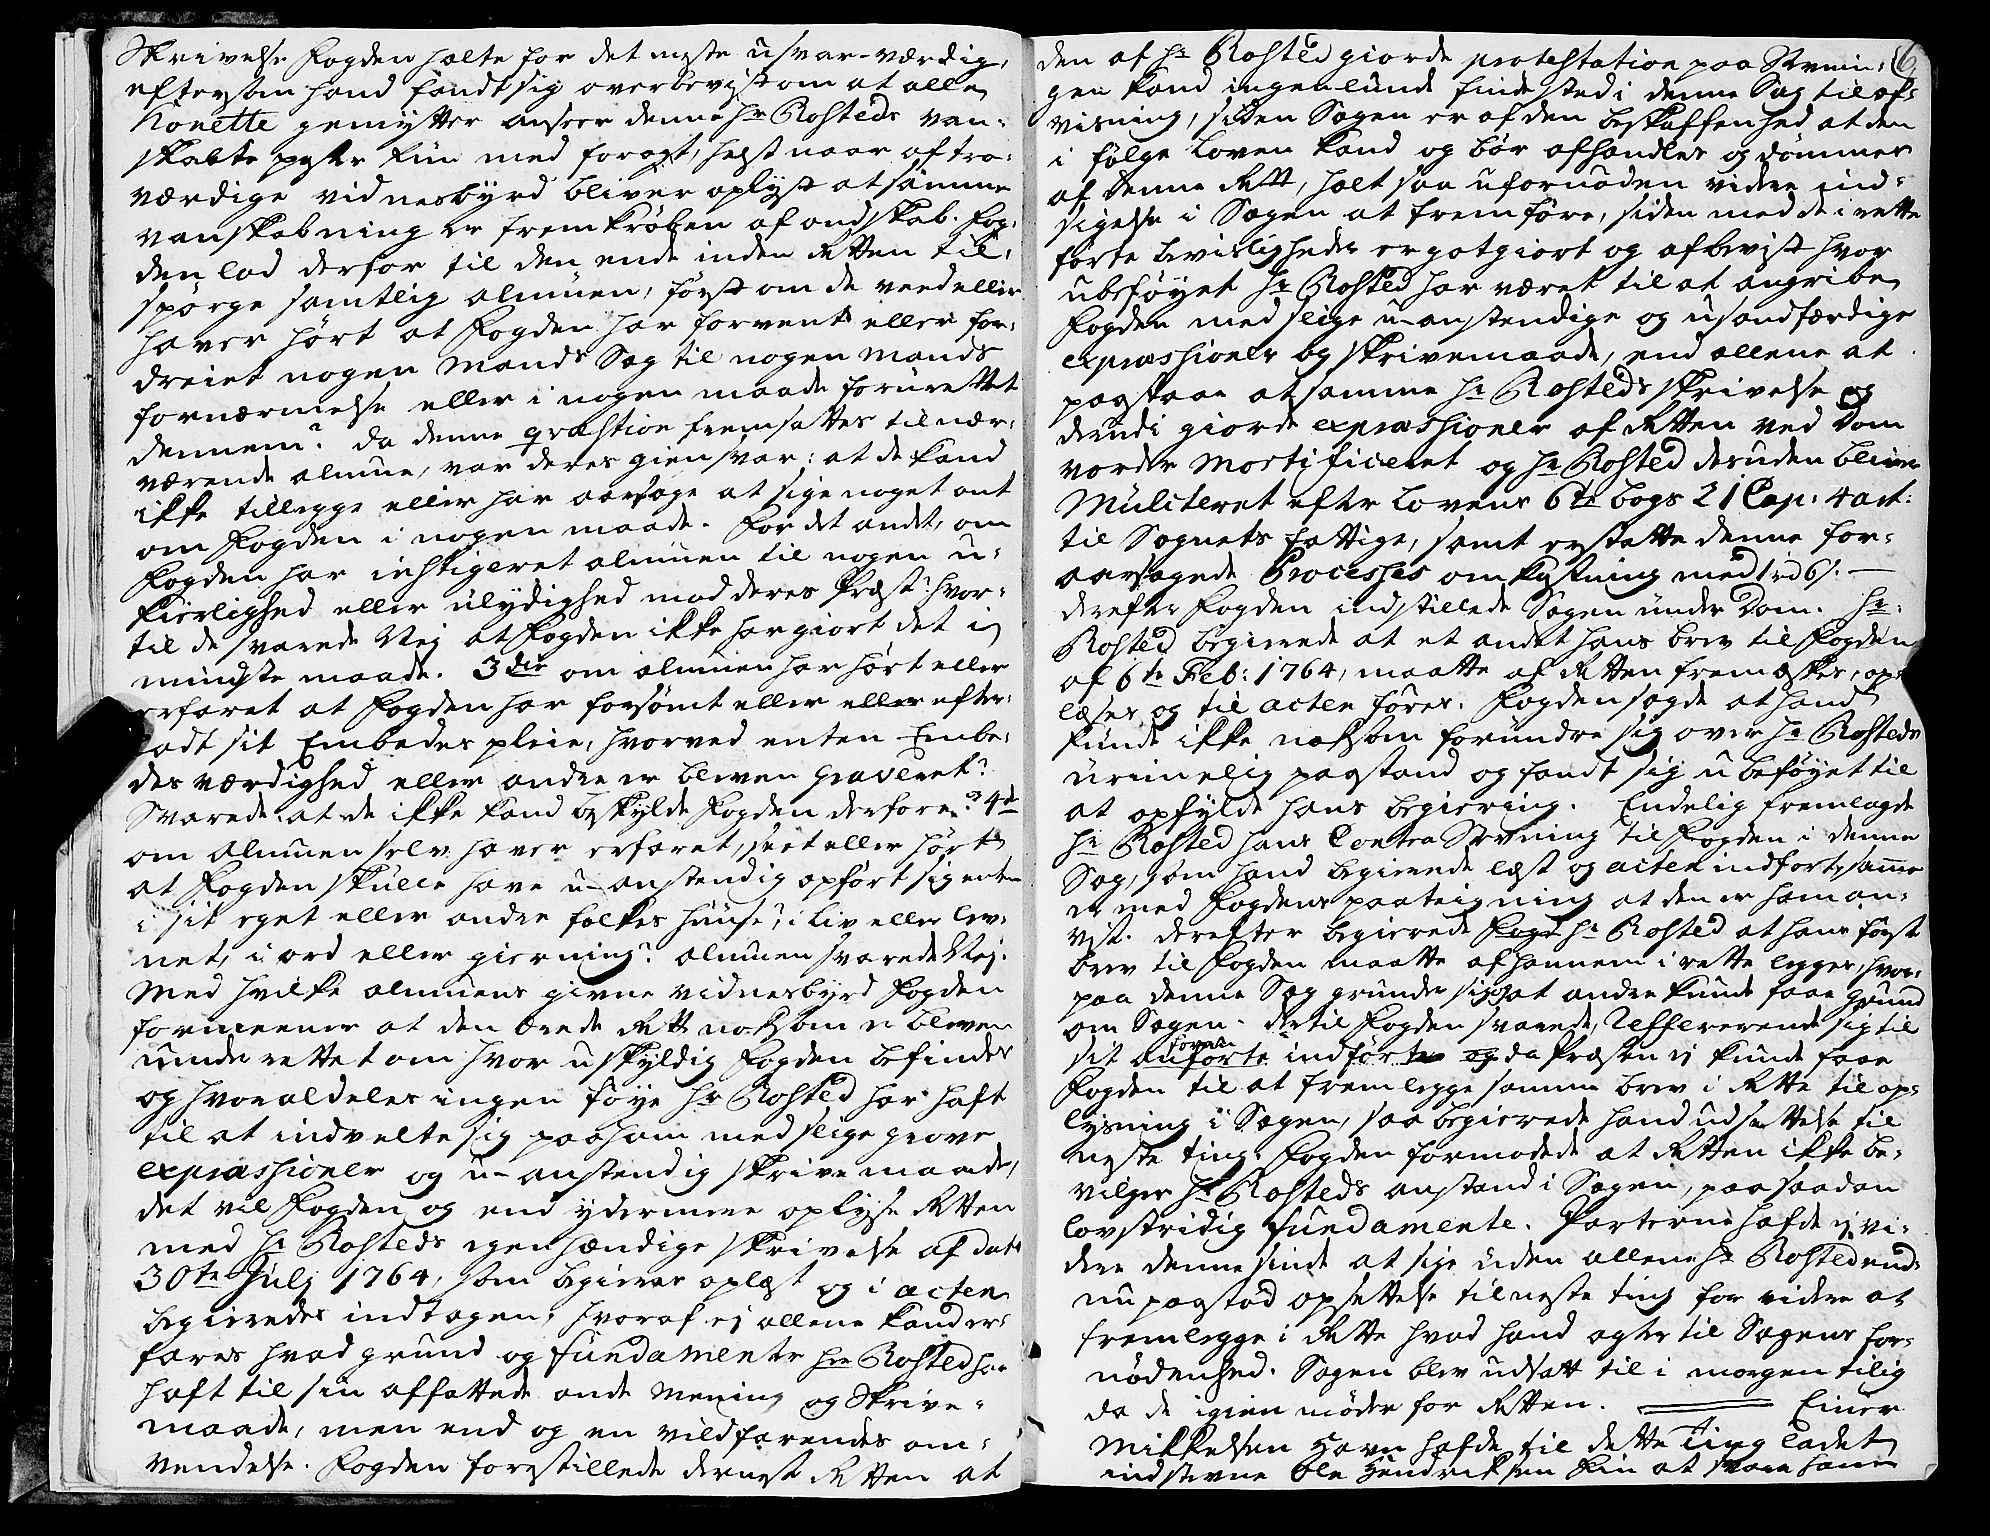 Skrivelse Fogden holte for det meste usvar-værdig,
eftersom hand fandt sig overbevist om at alle
honette gemytter anseer denne Hr Rosteds van-
skabte pøster kun med foragt, helst naar af tro-
værdige vidnesbyrd bliver oplyst at samme
vanskabning er fremkrøben af ondskab. Fog-
den lod derfor til den ende inden Retten til-
spørge samtlig almuen, først om de veed eller
haver hørt at Fogden har forvent eller for-
dreiet nogen Mands Sag til nogen Mands
fornærmelse eller i nogen maade forurettet
dennem? da denne qvæstion fremsattes til nær-
værende almue, var deres giensvar: at de kand
ikke tillegge eller har aarsage at sige noget ont
om Fogden i nogen maade. For det andet, om
Fogden har instigeret almuen til nogen u-
kierlighed eller ulydighed mod deres Præst? hvor-
til de svarede Nej at Fogden ikke har giort det i
mindste maade. 3die om almuen har hørt eller
erfaret at Fogden har forsømt eller eller efter-
ladt sit Embedes pleie, hvorved enten Embe-
des værdighed eller andre er bleven graveret?
Svarede at de ikke kand beskylde Fogden derfore? 4de
om almuen selv haver erfaret, seet eller hørt
at Fogden skulle have u-anstendig opført sig enten
i sit eget eller andre folkes huuse? i liv eller lev-
net, i ord eller gierning? almuen svarede Nej.
Med hvilke almuens givne vidnesbyrd Fogden
formeener at den ærede Rett noksom er bleven
underrettet om hvor uskyldig Fogden befindes
og hvor aldeles ingen føye Hr Rosted har haft
til at indvelte sig paa ham med slige grove
expressioner og u-anstendig skrivemaade,
det vil Fogden og end ydermere oplyse Retten
med Hr Rosteds egenhændige skrivelse af dato
30te Julj 1764, som begieres oplæst og i acten
begieredes indtagen, hvoraf ej allene kand er-
fares hvad grund og fundamente Hr Rosted har
haft til sin affattede onde Mening og Skrive-
maade, men end og en vildfarendes om-
vendelse. Fogden forestillede dernest Retten at
den af Hr Rosted giorde protestation paa Stevnin-
gen kand ingenlunde finde sted i denne Sag til af-
visning, siden Sagen er af den beskaffenhed at den
i følge Loven kand og bør afhandles og dømmes
af denne Rett, holt saa ufornøden videre ind-
sigelse i Sagen at fremføre, siden med de i rette
førte bevisligheder er gotgiort og afbevist hvor
ubeføyet Hr Rosted har været til at angribe
Fogden med slige u-anstendige og usandfærdige
expressioner og skrivemaade, end allene at
paastaae at samme Hr Rosteds skrivelse og
derudi giorde expressioner af Retten ved Dom
vorder Mortificeret og Hr Rosted desuden bliver
Mulcteret efter Lovens 6te bogs 21 Cap: 4 art:
til Sognets fattige, samt erstatte denne for-
aarsagede Processes omkostning med 1 rd 6 s. —
derefter Fogden indstillede Sagen under Dom. Hr.
Rosted begierede at et andet hans brev til Fogden
af 6te Feb: 1764, maatte af Retten fremæskes, op-
læses og til acten føres. Fogden sagde at hand
kunde ikke noksom forundre sig over Hr Rosteds
urimelig paastand og fandt sig ubeføyet til
at opfylde hans begiering. Endelig fremlagde
Hr Rosted hans Contra Stevning til Fogden i denne
Sag, som hand begierede læst og acten indført, samme
er med Fogdens paateigning at den er ham an-
vist. derefter begierede Fogd Hr Rosted at hans først
brev til Fogden maatte af hannem i rette legges, hvor-
paa denne Sag grunder sig, at andre kunde faae grund
om Sagen. dertil Fogden svarede, Reffererende sig til
sit forrige indførte og da Præsten ej kunde faae
Fogden til at fremlegge samme brev i Rette til op-
lysning i Sagen, saa begierede hand udsettelse til
neste ting. Fogden formodede at Retten ikke be-
vilger Hr Rosteds anstand i Sagen, paa saadan
lovstridig fundamente. Parterne hafde ej vi-
dere denne sinde at sige uden allene Hr Rosted end-
nu paastod opsettelse til neste ting for videre at
fremlegge i Rette hvad hand agter til Sagens for-
nødenhed. Sagen blev udsatt til i morgen tilig
da de igien møder for Retten. Einer
Mikkelsen Havn hafde til dette Ting ladet
indstevne Ole Hendriksen Fin at svare ham